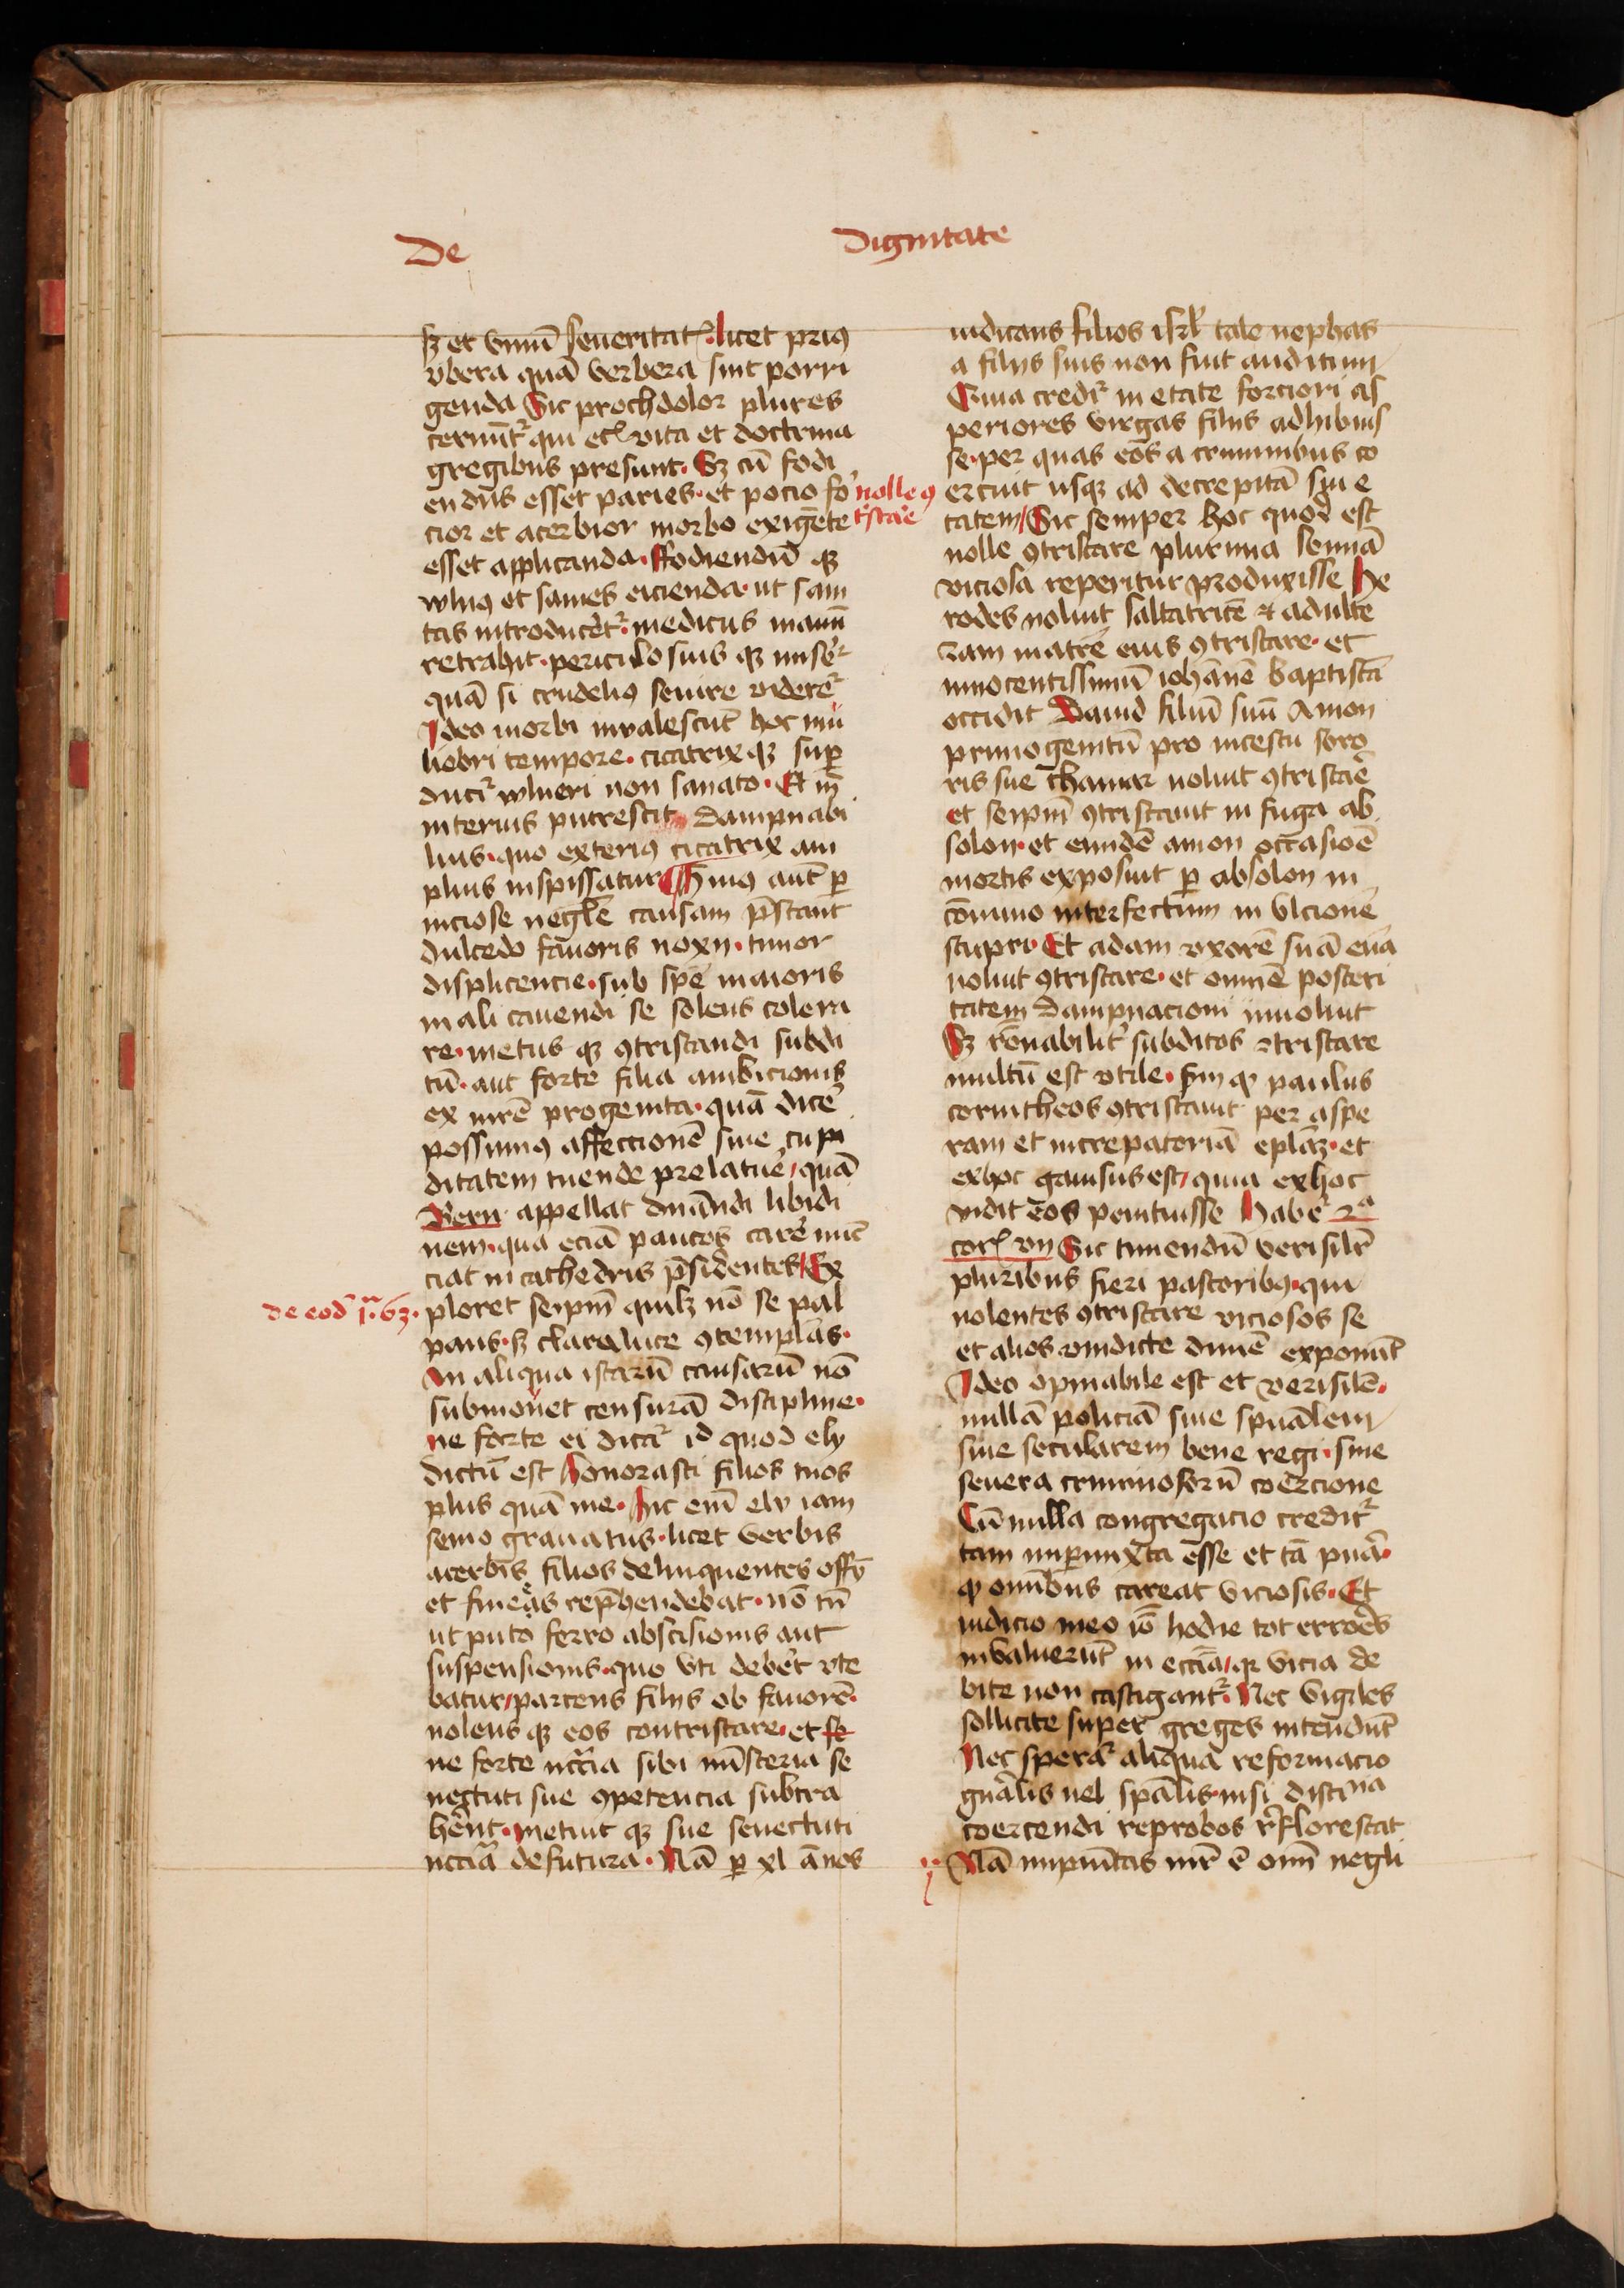 De
Dignitate
sȝ et vinū seueritatꝭ. licet priꝰ
vbera quā verbera sint porri
genda Sic prochdolor plures
cernūtᷣ qui ecꝭ vita et doctrina
gregibus presunt. Sȝ cū fodi
endus esset paries. et pocio for
cior et acerbior morbo exigēte
esset applicanda. ffodiendū qꝫ
wlnꝰ et sanies eicienda. ut sani
tas introducētᷣ. medicus manū
retrahit. periculosius qꝫ miseᷣ
quā si crudeliꝰ seuire viderēᷣ
Ideo morbi inualescūt hoc mu
liebri tempore. cicatrix qꝫ suꝑ
ducitᷣ wlneri non sanato. Et in
interius putrescit dampnabi
lius. quo exteriꝰ cicatrix am
plius inspissatur Huiꝰ autē ꝑ
niciose neglē causam p̄stant
dulcedo fauoris noxij. timor
displicencie. sub spe maioris
mali cauendi se solens colera
re. metus qꝫ ꝯtristandi subdi
tū. aut forte filia ambicionis
ex inrē progenita. quā dicē
possumꝰ affectionē siue cupi
ditatem tuende prelature, quā
Bern appellat dn̄andi libidi
nem. qua eciā paucos carē nūc
ciat in cathedris p̄sidentes, Ex
ploret seip̄m quilꝫ nō se pal
pans. sȝ clara luce ꝯtemplās.
An aliqua istarū causarū nō
submouet censurā discipline.
ne forte ei dicatᷣ id quod ely
dictū est Honorasti filios tuos
plus quā me. Hic em̄ ely iam
senio grauatus. licet verbis
acerbis filios delinquentes offī
et finees rep̄hendebat. nō tn̄
ut puto ferro abscisionis aut
suspensionis. quo vti debet vte
batur, parcens filijs ob fauorē.
nolens qꝫ eos contristare. et se
ne forte nccia sibi m̄steria se
nectuti sue ꝯpetencia subtra
hērt. metuit qꝫ sue senectuti
nccia defutura. Nā ꝑ xl ānos
nolle ꝯ
tꝰstaē
de eod̄ 1ᷓ.63.
iudicans filios isrl̄ tale nephas
a filijs suis non fuit auditum
Quia creditᷣ in etate forciori as
periores virgas filijs adhibuis
se. per quas eos a criminibus co
ercuit usqꝫ ad decrepitā sui e
tatem, Sic semper hoc quod est
nolle ꝯtristare plurima semīa
viciosa reperitur produxisse He
rodes noluit saltatricē et adulte
ram matrē eius ꝯtristare. et
innocentissimū iohānē baptistā
occidit Dauid filiū suū Amon
primogenitū pro incestu soro
ris sue thamar noluit ꝯtristaē
et seip̄m ꝯtristauit in fuga ab
solon. et eundē amon occasioē
mortis exposuit ꝑ absolon in
cōuiuio interfectum in vlcionē
stupri. Et adam vxorē suā euā
noluit ꝯtristare. et omnē posteri
tatem dampnacioni inuoluit
Sȝ rōnabilitᷣ subditos ꝯtristare
multū est vtile. sm̄ qꝫ paulus
corintheos ꝯtristauit per aspe
ram et increpatoriā eplāȝ. et
exhoc gauisus est, quia exhoc
vidit eos penituisse habetᷣ 2ᵃ
corꝭ vij Sic timendū verisilē
pluribus fieri pastoribꝰ. qui
nolentes ꝯtristare viciosos se
et alios vindicte diuinē exponūt
Ideo opinabile est et verisilē.
nullā policiā siue spūalem
siue secularem bene regi. sine
seuera criminosorū coercione
Cū nulla congregacio creditᷣ
tam impermixta esse et tā purᷓ.
qꝫ omībus careat viciosis. Et
iudicio meo iō hodie tot errores
inualuerūt in eccīa, qꝛ vicia de
bite non castigantᷣ. Nec vigiles
sollicite super greges intēdūt
Nec speratᷣ aliqua reformacio
gn̄alis uel spālis. nisi disciᵖˡⁱna
coercendi reprobos rēflorescat
Nā impuītas mrē ē oīm negli